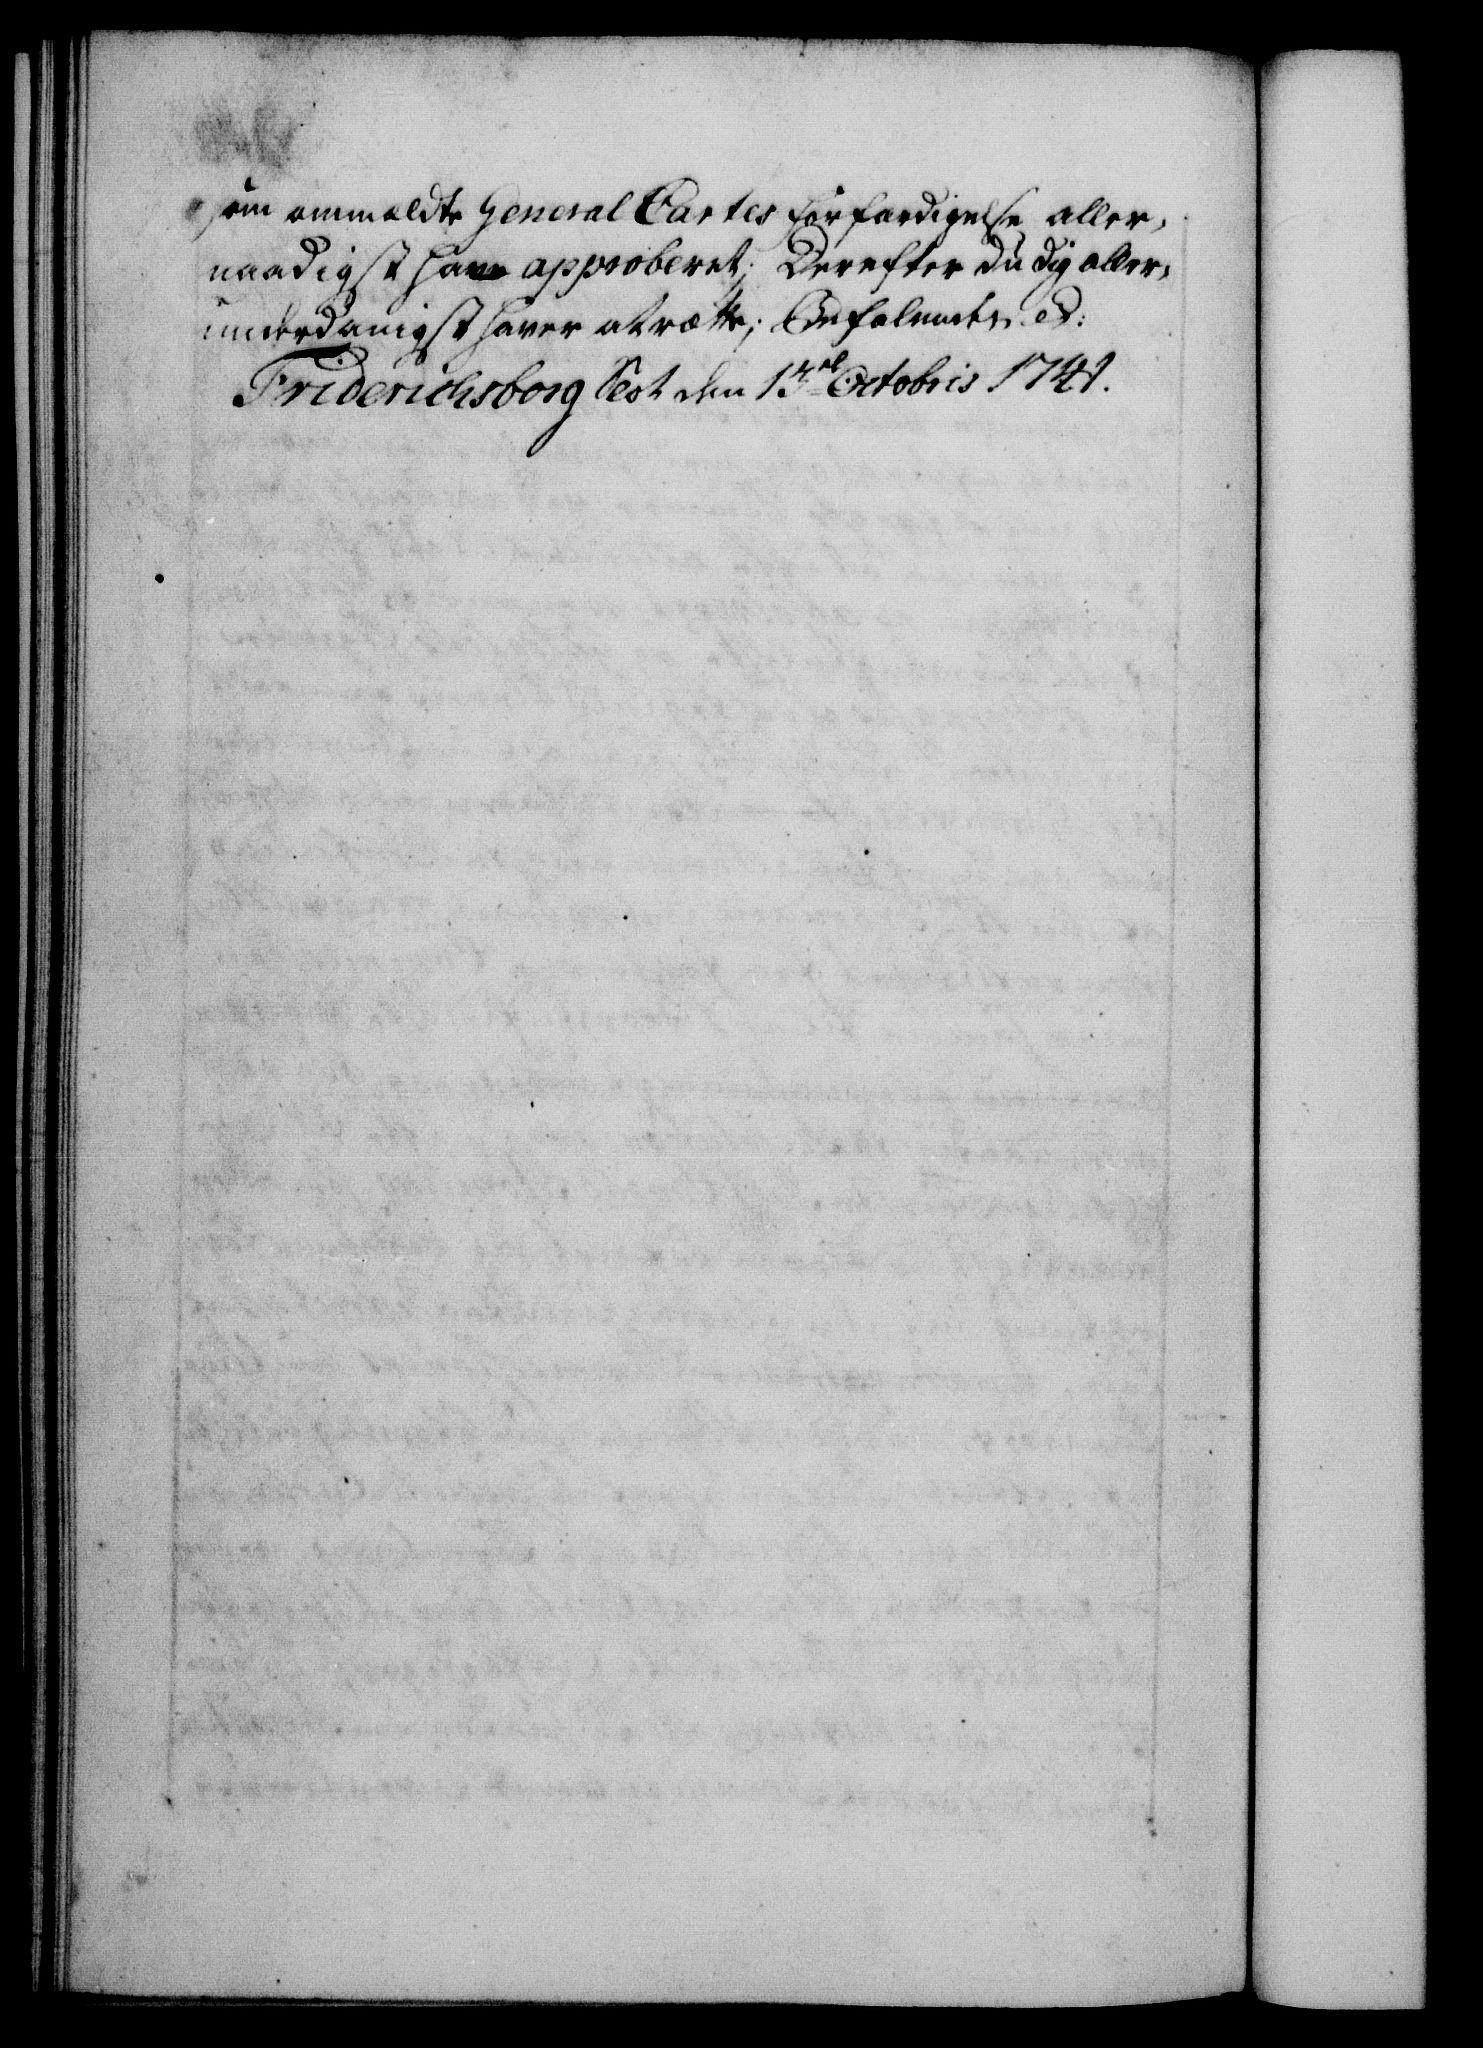 om ommeldte General Cartes forfærdigelse aller¬
naadigst have approberet; Derefter du dig aller¬
underdanigst haver at rætte; Befalendes etc:
Friderichsborg Slot den 13de Octobris 1741.